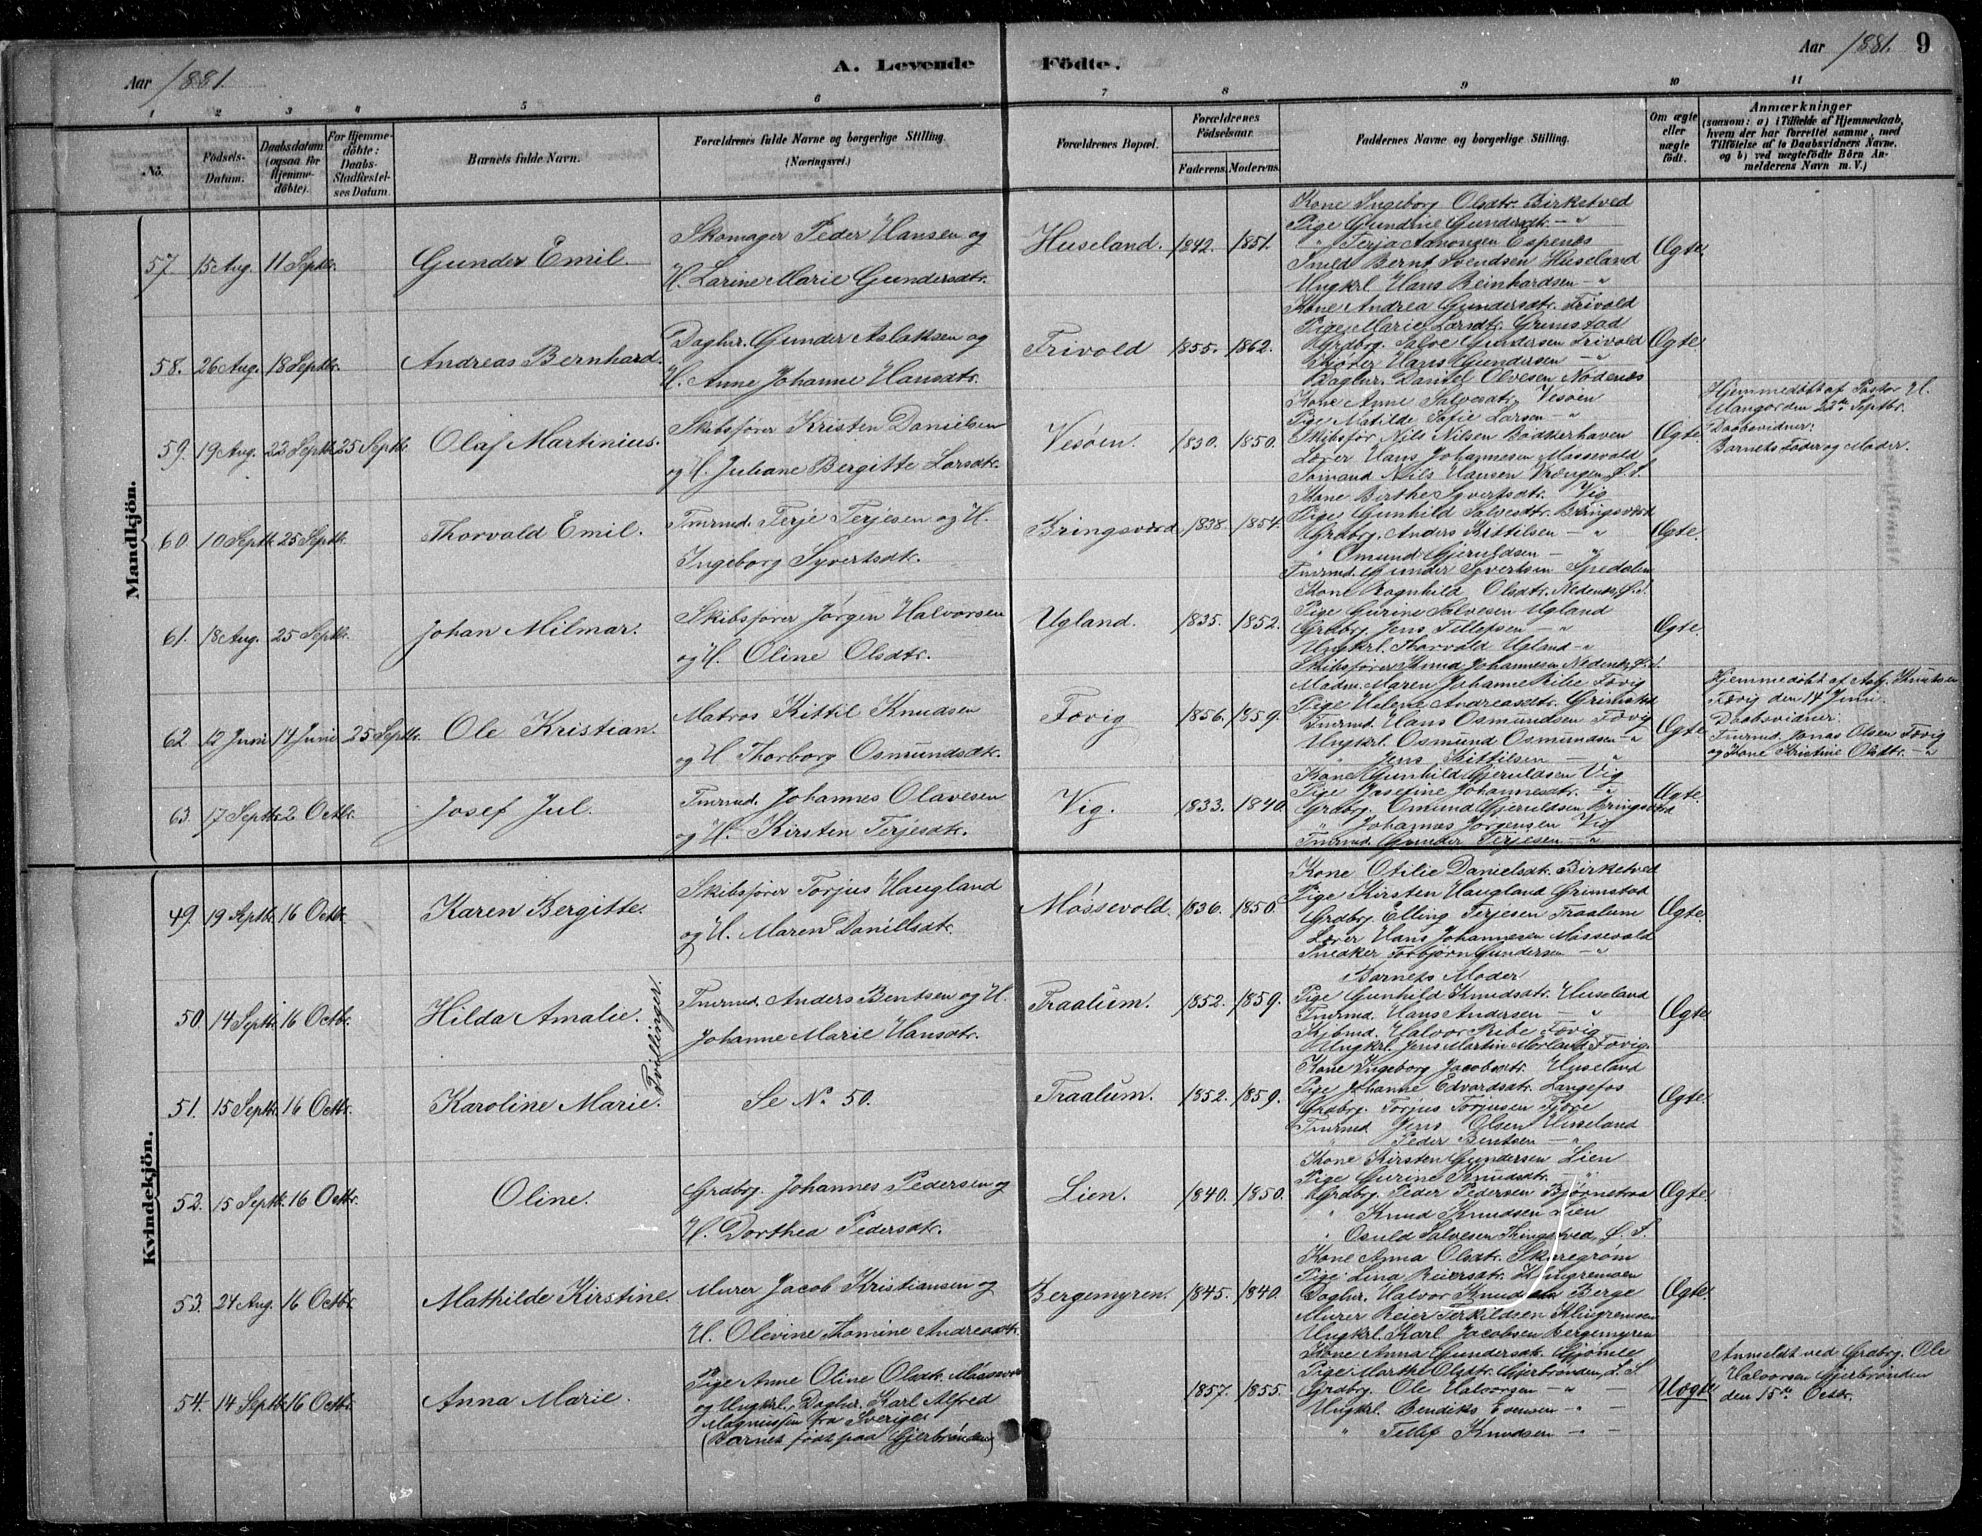 Aar 1881.
A. Levende Födte.
Aar 1881. 9
1 2 3 4 5 6 7 8 9 10 11
No.
Födsels-Datum.
Daabsdatum (ogsaa for Hjemmedöbte).
For Hjemmedöbte: Daabs-Stadfæstelses Datum.
Barnets fulde Navn.
Forældrenes fulde Navne og borgerlige Stilling. (Næringsvei.)
Forældrenes Bopæl.
Forældrenes Födselsaar. Faderens. Moderens.
Faddernes Navne og borgerlige Stilling.
Om ægte eller uægte födt.
Anmærkninger (saasom: a) i Tilfælde af Hjemmedaab, hvem der har forrettet samme, med Tilföielse af to Daabsvidners Navne, og b) ved uægtefödte Börn Anmelderens Navn m. V.)
Mandkjön.
57. 15 Aug. 11 Septbr. Gunder Emil.
Skomager Peder Hansen og
H. Larine Marie Gundersdtr.
Huseland. 1842. 1851.
Kone Ingeborg Olsdtr. Birketved
Pige Gundrie Gundersdtr. — "
" Terja Espenæs
Bernt Svendsen Huseland
Ungkrl. Hans Reinhardsen — "
Ægte.
58. 26 Aug. 18 Septbr. Andreas Bernhard.
Daglnr. Gunder Aslaksen og
H. Anne Johanne Hansdtr.
Frivold 1855. 1862.
Kone Andrea Gundersdtr. Frivold
Pige Marie Larsdtr. Grimstad
Grdbrg. Salve Gundersen Frivold
Hans Gundersen — "
Daglnr. Daniel Olvesen Nødenæs
Ægte.
59. 19 Aug. 23 Septbr. 25 Septbr. Olaf Martinius.
Skibsfører Kristen Danielsen
og H. Juliane Bergitte Larsdtr.
Vesøen. 1830. 1850.
Kone Anne Salvesdtr. Vesøen
Pige Matilde Sofie Larsen — "
Skibsfør Nils Nilsen Bødkerhaven
Lærer Hans Johannesen Møssevold
Sømand Nils Hansen Vrængen, Ø. S.
Ægte
Hjemmedøbt af Pastor H.
den 23de Septbr.
Daabsvidner:
Barnets Fader og Moder.
60. 10 Septbr. 25 Septbr. Thorvald Emil.
Tmrmd. Terje Terjesen og H.
Ingeborg Syvertsdtr.
Bringsværd 1838. 1854.
Kone Berthe Syvertsdtr. Vig
Pige Gunhild Salvesdtr. Bringsværd
Grdbrg. Anders Kittilsen — "
" Omund Gjeruldsen — "
Tmrmd. Gunder Syvertsen Spedalen
Ægte.
61. 18 Aug. 25 Septbr. Johan Milmar.
Skibsfører Jørgen Halvorsen
og H. Oline Olsdtr.
Ugland. 1835. 1852.
Kone Ragnhild Olsdtr. Nedenæs, Ø. S.
Pige Gurine Salvesen Ugland
Grdbrg. Jens Tellefsen — "
Ungkrl. Thorvald Ugland — "
Skibsfører Knud Johannesen Nedenæs, Ø. S.
Ægte.
62. 12 Juni 14 Juni 25 Septbr. Ole Kristian.
Matros Kittil Knudsen
og H. Thorborg Osmundsdtr.
Fævig 1856. 1859.
Madm. Maren Johanne Ribe Fævig
Pige Helena Andreasdtr. Grimstad
Tmrmd. Hans Osmundsen Fævig
Ungkrl. Osmund Osmundsen — "
" Jens Kittilsen — "
Ægte
Hjemmedøbt af Knutsen
Fævig den 14 Juni.
Daabsvidner:
Tmrmd. Jonas Olsen Fævig
og Kone Kristine Olsdtr. — "
63. 17 Septbr. 2 Octbr. Josef Jul.
Tmrmd. Johannes Olavesen
og H. Kirsten Terjesdtr.
Vig. 1833. 1840
Kone Gunhild Gjeruldsen Vig
Pige Josefine Johannesdtr. — "
Grdbrg. Omund Gjeruldsen Bringsværd
" Johannes Jørgensen Vig
Tmrmd. Gunder Terjesen — "
Ægte.
Kvindekjön.
49. 19 Septbr. 16 Octbr. Karen Bergitte.
Skibsfører Torjus Haugland
og H. Maren Daniilsdtr.
Møssevold. 1836. 1850.
Kone Otilie Danielsdtr. Birketved
Pige Kirsten Haugland Grimstad
Grdbrg. Elling Terjesen Traalum
Lærer Hans Johannesen Møssevold
Snedker Torbjørn Gundersen — "
Ægte.
50. 14 Septbr. 16 Octbr. Hilda Amalie.
Tvillinger.
Tmrmd. Anders Bentsen og H.
Johanne Marie Hansdtr.
Traalum. 1852. 1859.
Barnets Moder
Pige Gunhild Knudsdtr. Huseland
Tmrmd. Hans Andersen — "
Halvor Ribe Fævig
Ungkrl. Jens Martin Morland Fævig.
Ægte
51. 15 Septbr. 16 Octbr. Karoline Marie.
Se No. 50.
Traalum. 1852. 1859.
Kone Ingeborg Jacobsdtr. Huseland
Pige Johanne Edvardsdtr. Langefos
Grdbrg. Torjus Torjussen Fjære
Tmrmd Jens Olsen Huseland
" Peder Bentsen — "
Ægte.
52. 15 Septbr. 16 Octbr. Oline.
Grdbrg. Johannes Pedersen og
H. Dorthea Pedersdtr.
Lien. 1840. 1850.
Kone Kirsten Gundersen Lien
Pige Gurine Knudsdtr. "
Grdbrg. Peder Pedersen Bjørnetraa
" Knud Knudsen Lien
" Osuld Salvesen Ringstved, Ø. S.
Ægte.
53. 24 Aug. 16 Octbr. Mathilde Kirstine.
Murer Jacob Kristiansen og
H. Olevine Thomine Andreasdtr.
Bergemyren. 1845. 1840.
Kone Anna Olsdtr. Skaregrøm
Pige Lina Reiersdtr. Klingremoen
Daglnr. Halvor Knudsen Berge
Murer Reier Terkildsen Klingremoen
Ungkrl. Karl Jacobsen Bergemyren
Ægte.
54. 14 Septbr. 16 Octbr. Anna Marie.
Pige Anne Oline Olsdtr. Møssevold
og Ungkrl., Daglnr. Karl Alfred
Magnussen fra Sverige.
(Barnet født paa Gjerbrønden)
1857. 1855.
Kone Anna Gundersdtr. Gjømle
Pige Marthe Olsdtr. Gjerbrønden, L. S.
Grdbrg. Ole Halvorsen — " —
Ungkrl. Bendiks Evensen — " —
" Tellef Knudsen — " —
Uægte
Anmeldt ved Grdbrg. Ole
Halvorsen Gjerbrønden
den 15de Octbr.